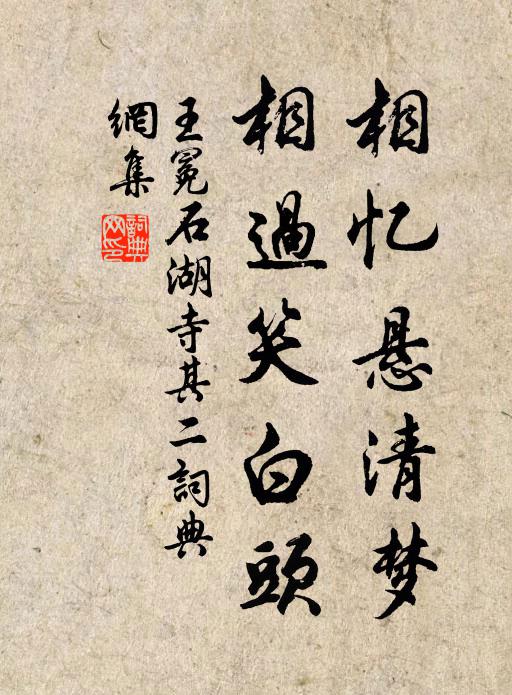 相忆悬清梦
相過笑白頭
王冕石湖寺其二詞典
網集
詞典
网印